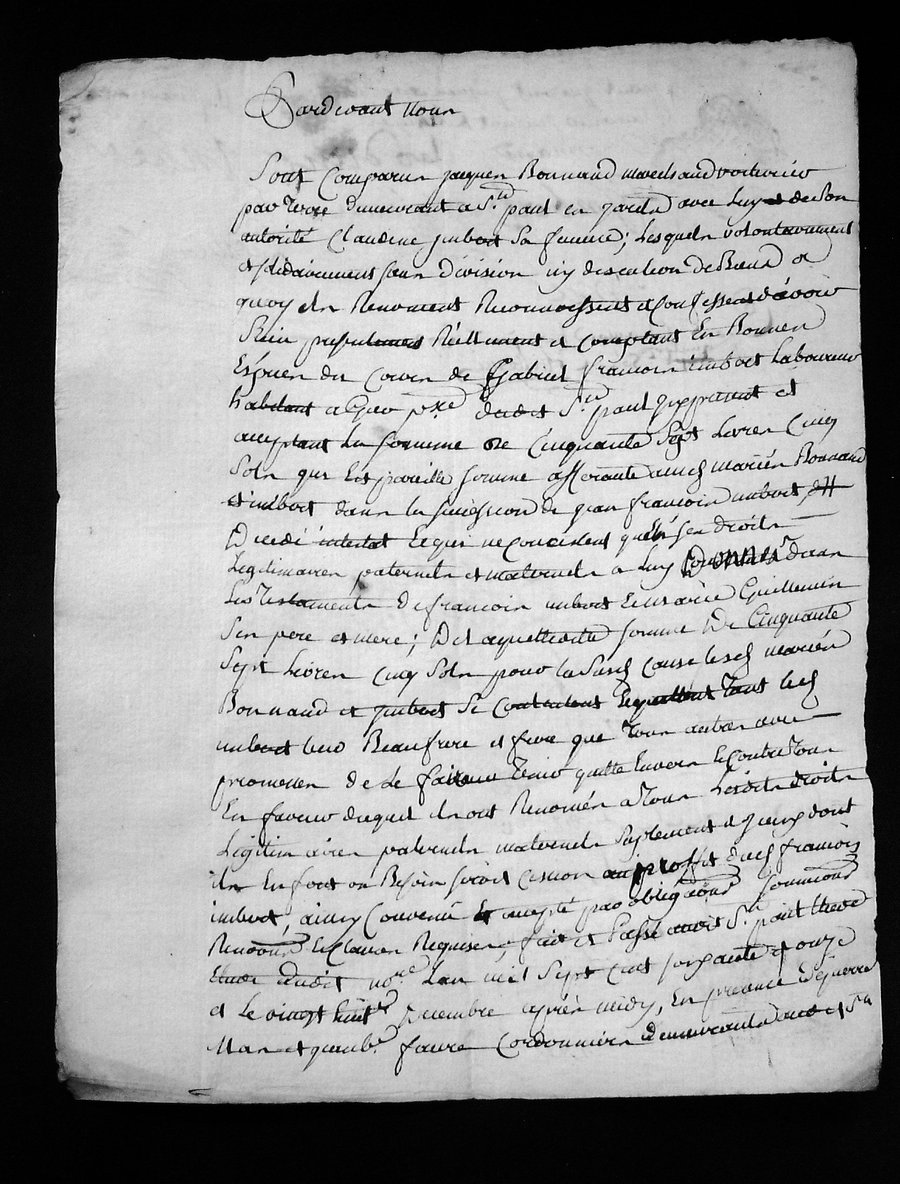 Pardevant Nous
Sont Comparus jacques Bonnand marchand voiturier
par Terre demeurant a St paul en jarêts avec luy et de son
autorité Claudine jmbert sa femme; lesquels volontairement
et solidairement sans division ny discution de Biens a
quoy ils Renoncent Reconnoissent et Confessent d'avoir
Reçu presentement Réellement et comptant En Bonnes
Espèces du Cours de Gabriel françois imbert Laboureur
habitant a psse dudit St paul jcy present et
acceptant la somme de Cinquante Sept Livres Cinq
Sols qui Est pareille somme afferante auxd mariés Bonnand
et imbert dans la succession de jean françois imbert
Décédé intestat Et qui ne concistent qu'En ses droits
Legitimaires paternels et maternels a luy Donnés dans
Les Testaments de francois imbert Et marie Guillemin
Ses pere et mere; De laquelle ditte somme De Cinquante
Sept Livres Cinq Sols pour la susd cause lesd mariés
Bonnand et jmbert Se Contentent Et quittent Tant led
imbert leur Beaufrere et frere que Tous autres avec
promesses de le faire Tenir quitte Envers Et contre Tous
En faveur duquel ils ont Renoncés a Tous Lesdits droits
Legitimaires paternels maternels Suplement d'jceux dont
ils En font au Besoin sirois cession au proffit dud françois
imbert, ainsy Convenu Et accepté par obligaons soumisons
Renonons Et Clauses Requises, fait et Passé audit St paul
Etude dudit nore Lan mil Sept Cent soixante et onze
et Le vingt huit Decembre après midy, En presence de pierre
Mas et faure Cordonniers demeurants audit St